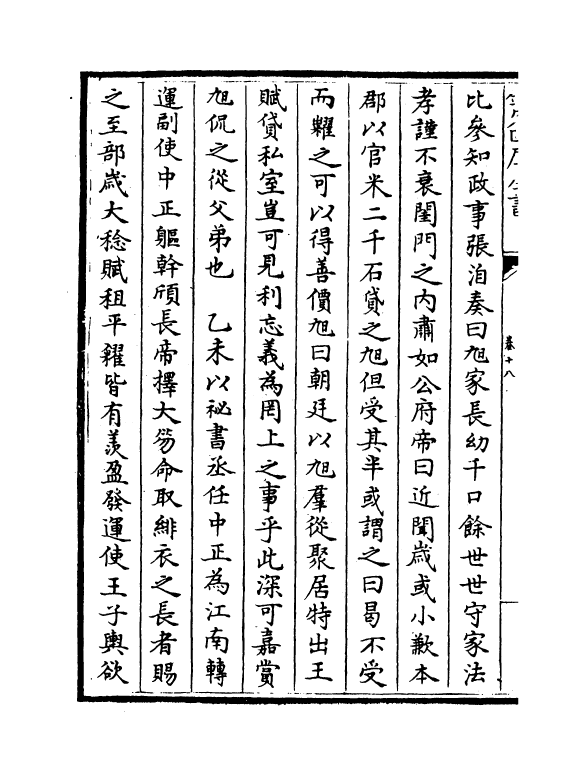 比參知政事張洎奏曰旭家長幼千口餘世世守家法
孝謹不衰閨門之内肅如公府帝曰近聞歲或小歉本
郡以官米二千石貸之旭但受其半或謂之曰曷不受
而糶之可以得善價旭曰朝廷以旭羣從聚居特出王
賦貸私室豈可見利忘義為罔上之事乎此深可嘉賞
旭侃之從父弟也　乙未以祕書丞任中正為江南轉
運副使中正軀幹頎長帝擇大笏命取緋衣之長者賜
之至部歲大稔賦租平糴皆有羨盈發運使王子輿欲
卷十八